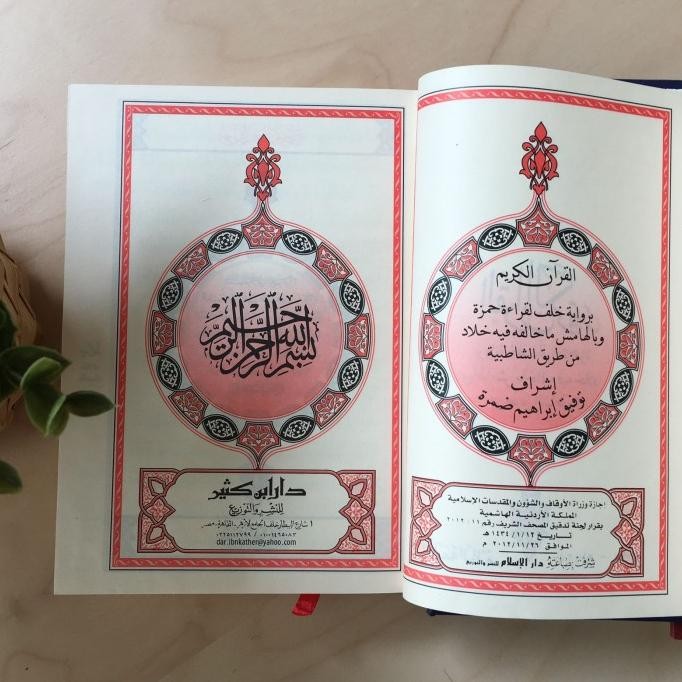 القرآن الكريم
برواية خلف لقراءة حمزة
وبالهامش ما خالفه فيه خلاد
من طريق الشاطبية
إشراف
توفيق إبراهيم ضمرة
اجازة وزراة الأوقاف والشؤون والمقدسات الإسلامية
المملكة الأردنية الهاشمية
بقرار لجنة تدقيق المصحف الشريف رقم ١١ - ٢٠١٢
تاريخ ١٤٣٤/١/١٢ هـ
الموافق ٢٠١٢/١١/٢٦ م
شرفت بصناعته دار الإسلام للنشر والتوزيع
بسم الله الرحمن الرحيم
دار ابن كثير
للنشر والتوزيع
١ شارع البيطار خلف الجامع الأزهر - القاهرة - مصر
dar.ibnkather@yahoo.com